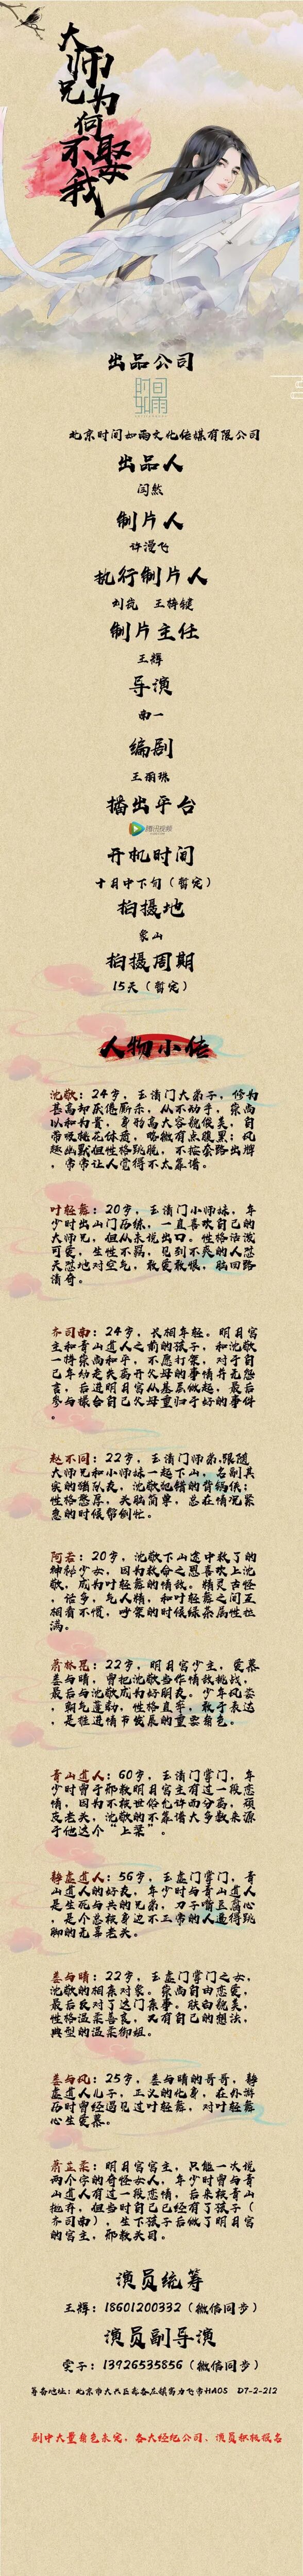 大师兄为何不娶我
出品公司
时间如雨
北京时间如雨文化传媒有限公司
出品人
闫然
制片人
许漫飞
执行制片人
刘苑 王特键
制片主任
王辉
导演
南一
编剧
王丽珠
播出平台
腾讯视频
开机时间
十月中下旬（暂定）
拍摄地
象山
拍摄周期
15天（暂定）
人物小传
沈敬：24岁，玉清门大弟子，修为
甚高却厌倦厮杀，从不动手，崇尚
以和为贵，身形高大容貌俊美，自
带吸桃花体质，略微有点腹黑；风
趣幽默但性格跳脱，不按套路出牌
，常常让人觉得不太靠谱。
叶轻舞：20岁，玉清门小师妹，年
少时出山门历练，一直喜欢自己的
大师兄，但从未说出口。性格活泼
可爱，生性不羁，见到不爽的人怼
天怼地对空气，敢爱敢恨，脑回路
清奇。
齐司南：24岁，长相年轻。明月宫
主和青山道人之前的孩子，和沈敬
一样崇尚和平，不愿打架，对于自
己年幼走失离开父母的事情并无怨
言，后进明月宫从基层做起，最后
参与撮合自己父母重归于好的事件
。
赵不同：22岁，玉清门师弟,跟随
大师兄和小师妹一起下山，名副其
实的猪队友，沈敬犯错的背锅侠；
性格憨厚，头脑简单，总在情况紧
急的时候帮倒忙。
阿若：20岁，沈敬下山途中救了的
神秘少女，因为救命之恩喜欢上沈
敬，成为叶轻舞的情敌。精灵古怪
，话多，气人精，和叶轻舞之间互
相看不惯，吵架的时候绿茶属性拉
满。
萧林晃：22岁，明月宫少主，爱慕
姜与晴，曾把沈敬当作情敌挑战，
最后与沈敬成为好朋友。少年风姿
，朝气蓬勃，性格直率，敢于表达
，是推进情节发展的重要角色。
青山道人：60岁，玉清门掌门，年
少时曾于邪教明月宫主有过一段恋
情，因为不被世俗允许而分离，顽
皮老头，沈敬的不靠谱大多数来源
于他这个“上梁”。
静虚道人：56岁，玉虚门掌门，青
山道人的好友，年少时与青山道人
是生死与共的兄弟，刀子嘴豆腐心
，是个总被身边不正常的人逼得跳
脚的无辜老头。
姜与晴：22岁，玉虚门掌门之女，
沈敬的相亲对象。崇尚自由恋爱，
最后反对了这门亲事。肤白貌美，
性格温柔善良，又有自己的想法，
典型的温柔御姐。
姜与风：25岁，姜与晴的哥哥，静
虚道人儿子，正义的化身，在外游
历时曾经遇见过叶轻舞，对叶轻舞
心生爱慕。
萧芷柔：明月宫宫主，只能一次说
两个字的奇怪女人，年少时曾与青
山道人有过一段恋情，后来被青山
抛弃，但当时自己已经有了孩子（
齐司南），生下孩子后做了明月宫
的宫主，邪教头目。
演员统筹
王辉：18601200332（微信同步）
演员副导演
雯子：13926535856（微信同步）
筹备地址：北京市大兴区瀛海各庄镇富力飞帝HAOS D7-2-212
剧中大量角色未定，各大经纪公司、演员积极报名